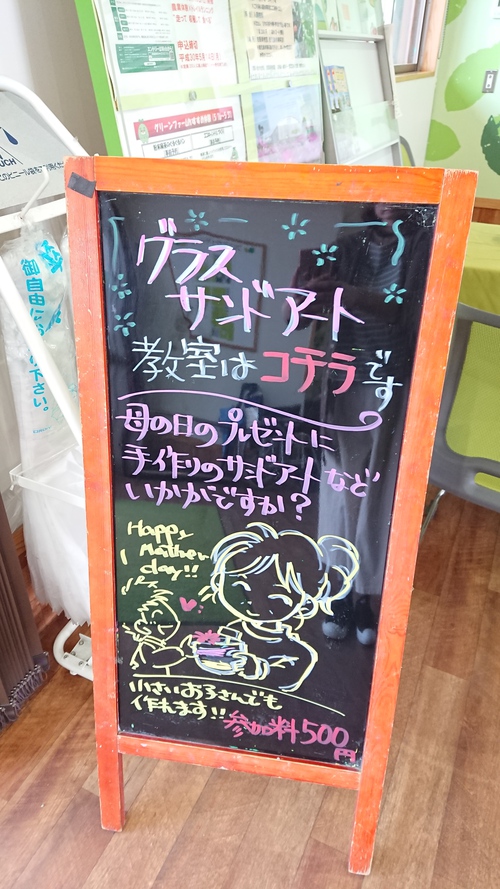 グラス
サンドアート
教室はコチラです
母の日のプレゼントに
手作りのサンドアートなど
いかかですか?
Happy
Mather
day!!
小さいお子さんでも
作れます!!
参加料500円
申込締切
御自由に
下さい。